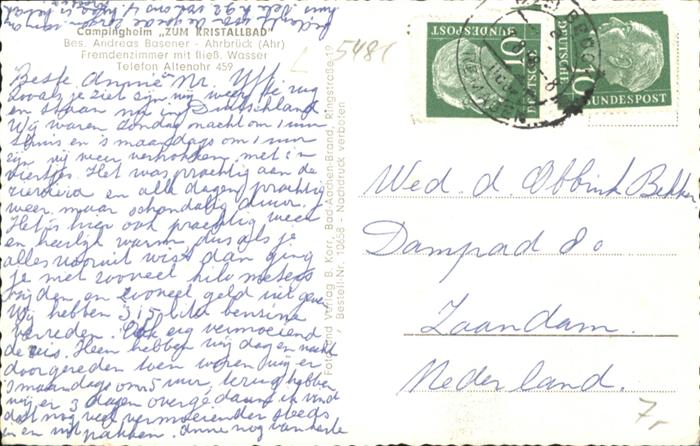 Campingheim „ZUM KRISTALLBAD"
Bes. Andreas Basener - Ahrbrück (Ahr)
Fremdenzimmer mit fließ. Wasser
Telefon Altenahr 459
5481
Beste Annie
Zoals je ziet zijn wij weer de
en staan nu in Duitschland
Wij waren Zondag nacht om 1 uur
thuis en 's maandags om 1 uur
zijn wij weer vertrokken met z'n
viertjes. Het was prachtig aan de
en alle dagen prachtig
weer maar schandalig duur.
Het is hier ook prachtig weer
en heerlijk warm, dus als je
alles vooruit wist dan ging
je niet zooveel kilometers
rijden en zooveel geld uit geven
Wij hebben 315 liter benzine
verreden. Ook erg vermoeiend
de reis. Heen hebben wij dag en nacht
doorgereden toen waren wij er
's maandags om 5 uur, terug hebben
wij er 3 dagen over gedaan ik vond
dat nog veel vermoeiender steeds
en uitpakken. Annie nog van harte
Foto und Verlag B. Korr, Bad-Aachen-Brand, Ringstraße 19
Bestell-Nr. 10658 - Nachdruck verboten
DEUTSCHE
BUNDESPOST
10
DEUTSCHE
BUNDESPOST
10
Wed. d. Obbink Bekker
Dampad 80
Zaandam.
Nederland.
7,-